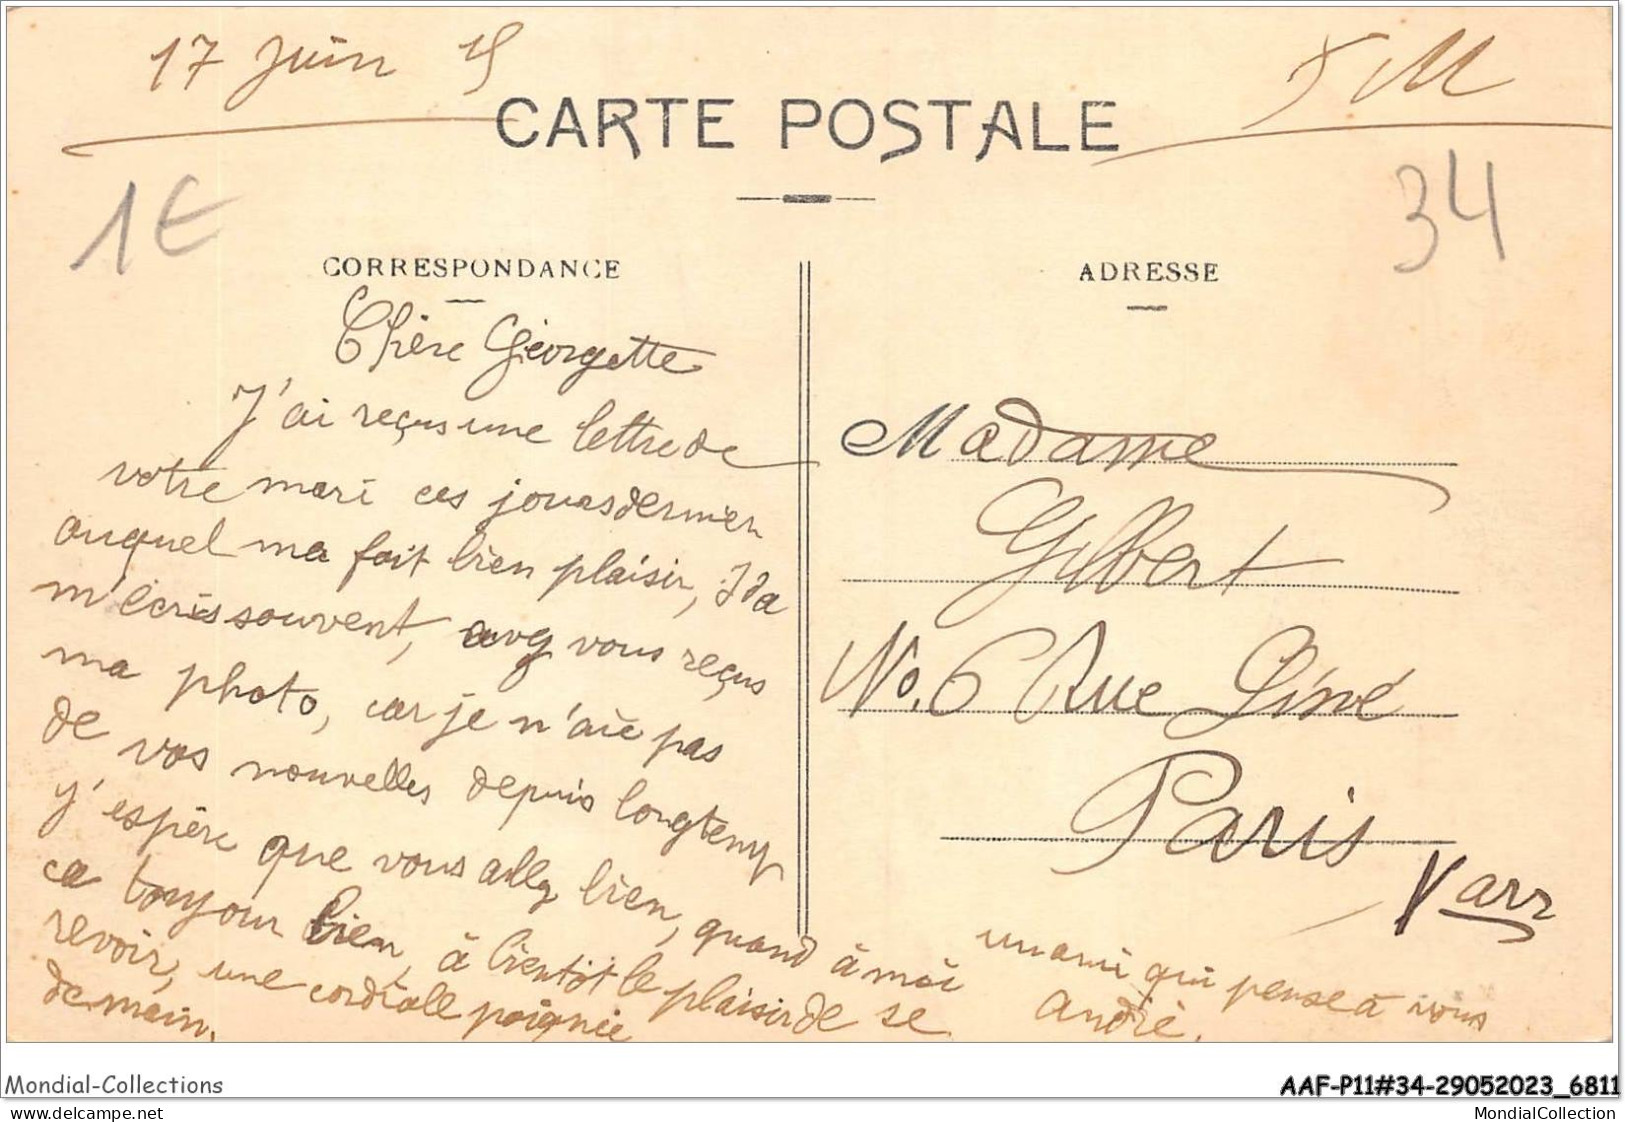 17 Juin 15
F M
CARTE POSTALE
1€
34
CORRESPONDANCE
Chère Géorgette
J'ai reçus une lettre de
votre mari ces jours dernier
auquel ma fait bien plaisir, Ida
m'écris souvent, avez vous reçus
ma photo, car je n'aie pas
de vos nouvelles depuis longtemp
j'espère que vous allez bien, quand à moi
ca toujour bien, à bientôt le plaisir de se
revoir, une cordiale poignée
de main.
un ami qui pense à vous
André.
ADRESSE
Madame
Gilbert
No. 6 Rue
Paris
V arr
Mondial-Collections
AAF-P11#34-29052023_6811
www.delcampe.net
MondialCollection